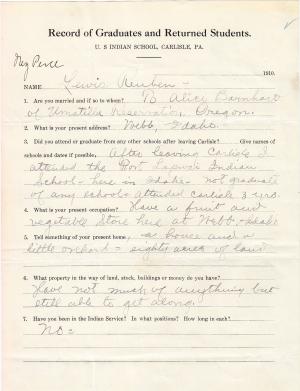 Record of Graduates and Returned Students.
U. S INDIAN SCHOOL, CARLISLE, PA.
Nez Perce
1910.
NAME Lewis Reuben -
1. Are you married and if so to whom? To Alice Barnhart
of Umatilla Reservation, Oregon.
2. What is your present address? Webb, Idaho.
3. Did you attend or graduate from any other schools after leaving Carlisle? Give names
of schools and dates if possible. After leaving Carlisle I
attended the Fort Lapwai Indian
School - here in Idaho - not graduate
of any schools attended Carlisle 3 yrs.
4. What is your present occupation? Have a fruit and
vegetable Store here at Webb - Idaho
5. Tell something of your present home, - a house and a
little orchard = eighty acres of land
6. What property in the way of land, stock, buildings or money do you have?
Have not much of anything but
still able to get along.
7. Have you been in the Indian Service? In what positions? How long in each?
No =